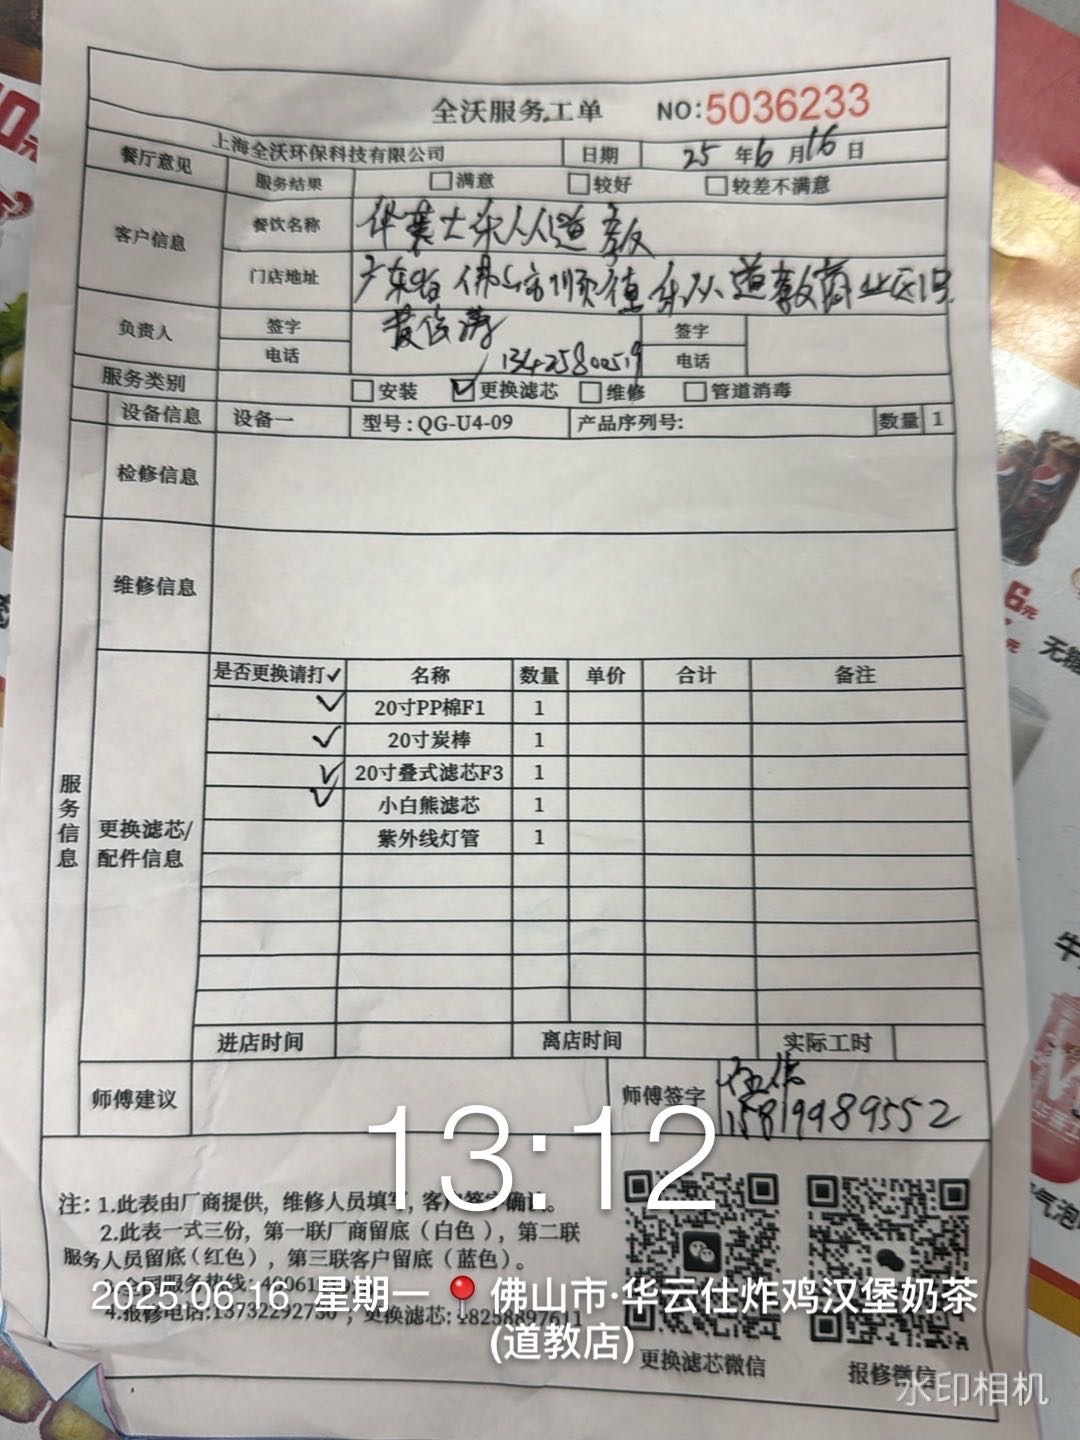 全沃服务工单 NO:5036233
上海全沃环保科技有限公司 日期 25 年 6 月 16 日
餐厅意见 服务结果 满意 较好 较差不满意
客户信息
餐饮名称 华莱士乐从道教
门店地址 广东省佛山市顺德乐从道教商业区1号
负责人 签字 签字
电话 13425800519 电话
服务类别 安装 ✓更换滤芯 维修 管道消毒
设备信息 设备一 型号:QG-U4-09 产品序列号: 数量 1
检修信息
维修信息
服务信息
更换滤芯/
配件信息
是否更换请打✓ 名称 数量 单价 合计 备注
✓ 20寸PP棉F1 1
✓ 20寸炭棒 1
✓ 20寸叠式滤芯F3 1
✓ 小白熊滤芯 1
紫外线灯管 1
进店时间 离店时间 实际工时
师傅建议 师傅签字
15819989552
13:12
注: 1.此表由厂商提供, 维修人员填写, 客户签字确认。
2.此表一式三份, 第一联厂商留底(白色), 第二联
服务人员留底(红色), 第三联客户留底(蓝色)。
2025.06.16 星期一 佛山市·华云仕炸鸡汉堡奶茶
(道教店)
4.报修电话:13732292750 ; 更换滤芯:
更换滤芯微信 报修微信
水印相机
10元
6元
元
无糖
牛
气泡